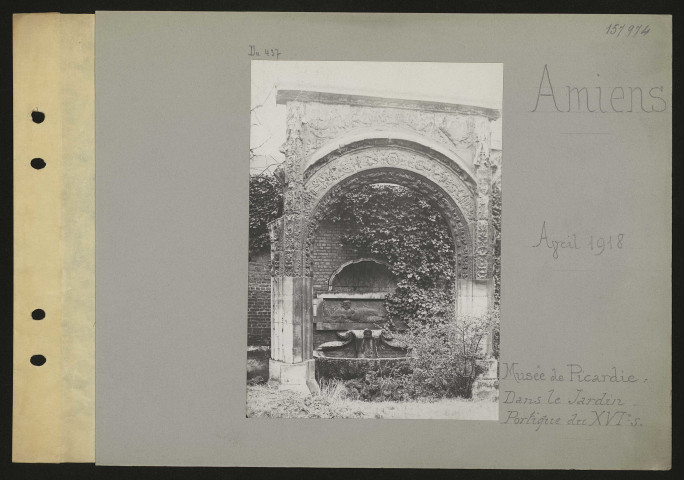 157974
De 437
Amiens
Avril 1918
Musée de Picardie.
Dans le Jardin.
Portique du XVIe s.